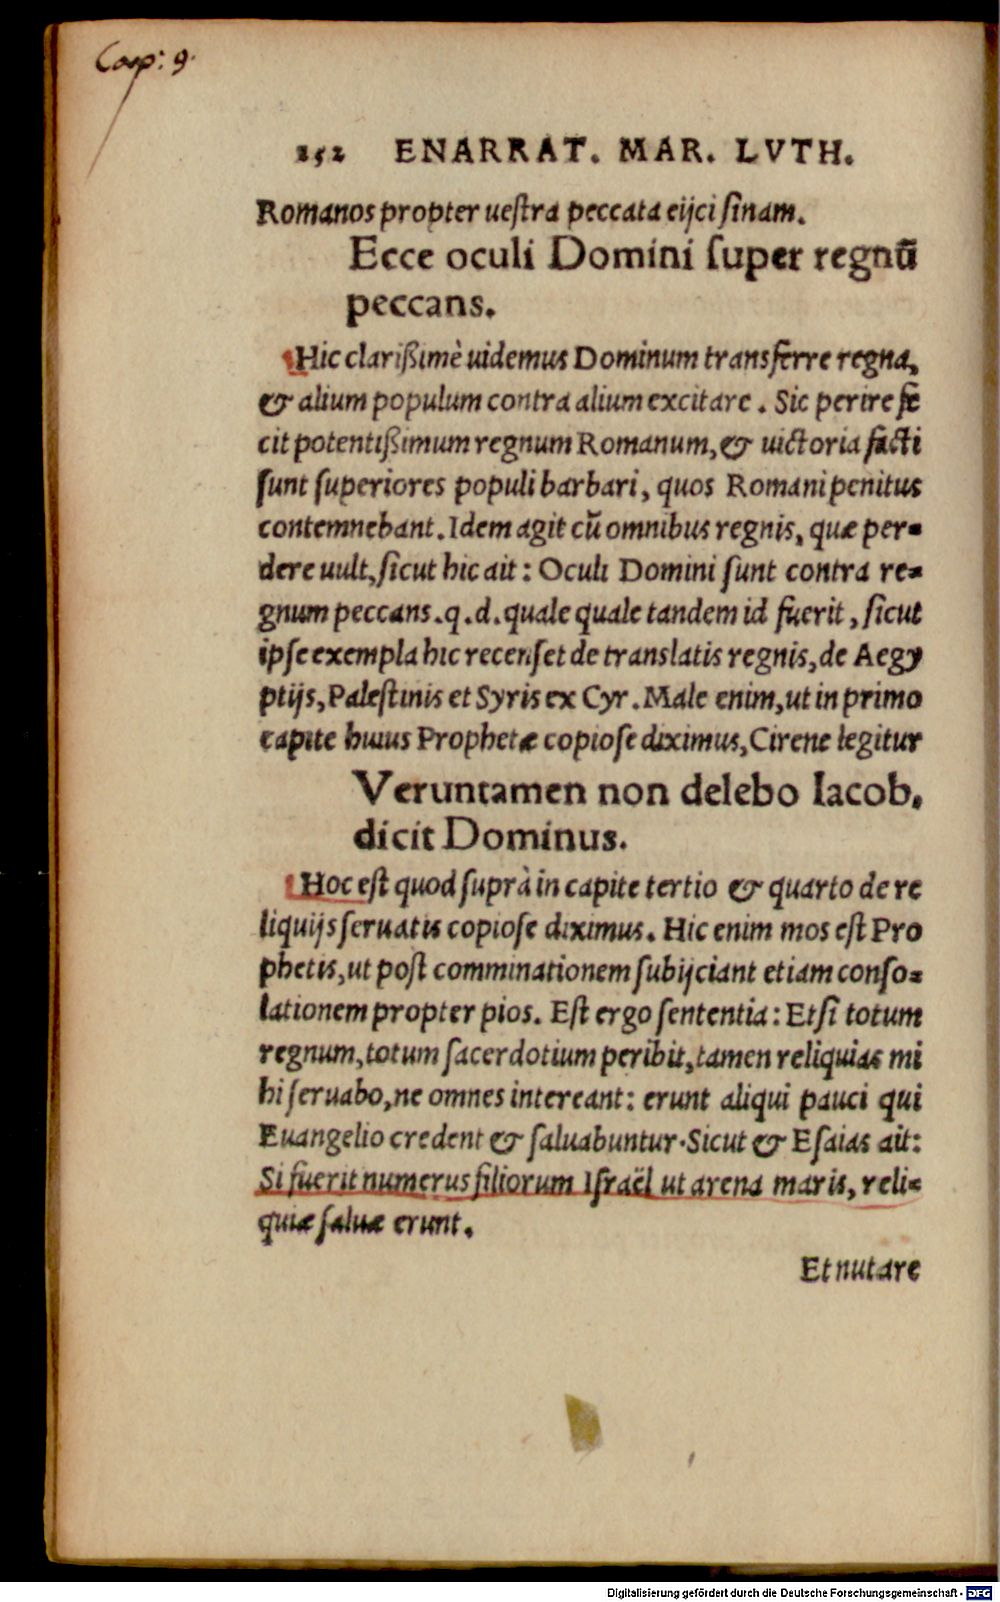 Cap: 9.
252 ENARRAT. MAR. LVTH.
Romanos propter uestra peccata eijci sinam.
Ecce oculi Domini super regnũ
peccans.
Hic clarißimè uidemus Dominum transferre regna,
& alium populum contra alium excitare. Sic perire fe
cit potentißimum regnum Romanum, & uictoria facti
sunt superiores populi barbari, quos Romani penitus
contemnebant. Idem agit cũ omnibus regnis, quæ per-
dere uult, sicut hic ait: Oculi Domini sunt contra re-
gnum peccans. q. d. quale quale tandem id fuerit, sicut
ipse exempla hic recenset de translatis regnis, de Aegy
ptijs, Palestinis et Syris ex Cyr. Male enim, ut in primo
capite huius Prophetæ copiose diximus, Cirene legitur
Veruntamen non delebo Iacob,
dicit Dominus.
Hoc est quod suprà in capite tertio & quarto de re
liquijs seruatis copiose diximus. Hic enim mos est Pro
phetis, ut post comminationem subijciant etiam conso-
lationem propter pios. Est ergo sententia: Etsi totum
regnum, totum sacerdotium peribit, tamen reliquias mi
hi seruabo, ne omnes intereant: erunt aliqui pauci qui
Euangelio credent & saluabuntur. Sicut & Esaias ait:
Si fuerit numerus filiorum Israël ut arena maris, reli-
quiæ saluæ erunt.
Et nutare
Digitalisierung gefördert durch die Deutsche Forschungsgemeinschaft - DFG